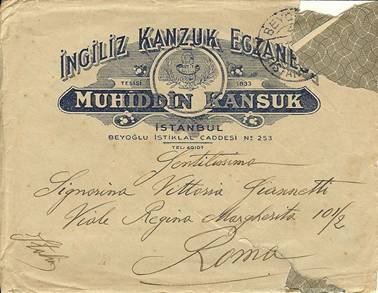 İNGİLİZ KANZUK ECZANESİ
BEYOĞLU
TESİSİ 1833
MUHIDDİN KANSUK
İSTANBUL
BEYOĞLU İSTİKLAL CADDESİ Nº 253
TEL:
Gentilissima
Signorina Vittoria Giannetti
Viale Regina Margherita 101/2
Roma
Italia